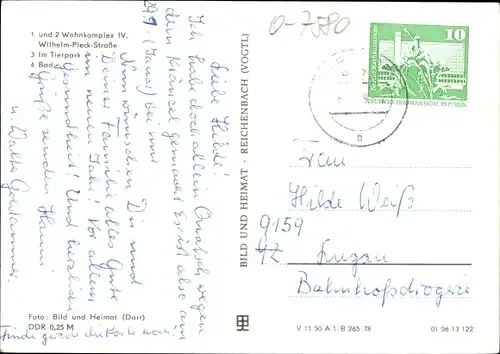 1 und 2 Wohnkomplex IV,
Wilhelm-Pieck-Straße
3 Im Tierpark
4 Bad
Liebe Hilde!
Ich habe doch allein wegen
dem gemacht. Es ist also am
29.9. bei mir
Nun wünschen Dir und
Deiner Familie alles Gute
im neuen Jahr! Vor allem
Gesundheit! Und herzliche
Grüße senden Hanni
u. Walter
Foto: Bild und Heimat (Darr)
DDR 0,25 M
Finde gerade die Karte noch!
BILD UND HEIMAT · REICHENBACH (VOGTL)
0-7580
10
DEUTSCHE DEMOKRATISCHE REPUBLIK
b
Frau
Hilde Weiß
9159
Lugau
Bahnhofsdrogerie
V 11 50 A 1/B 265/78
01 06 13 122